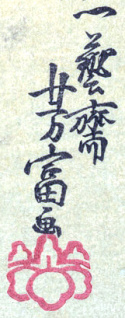 一藝齋
芳富画